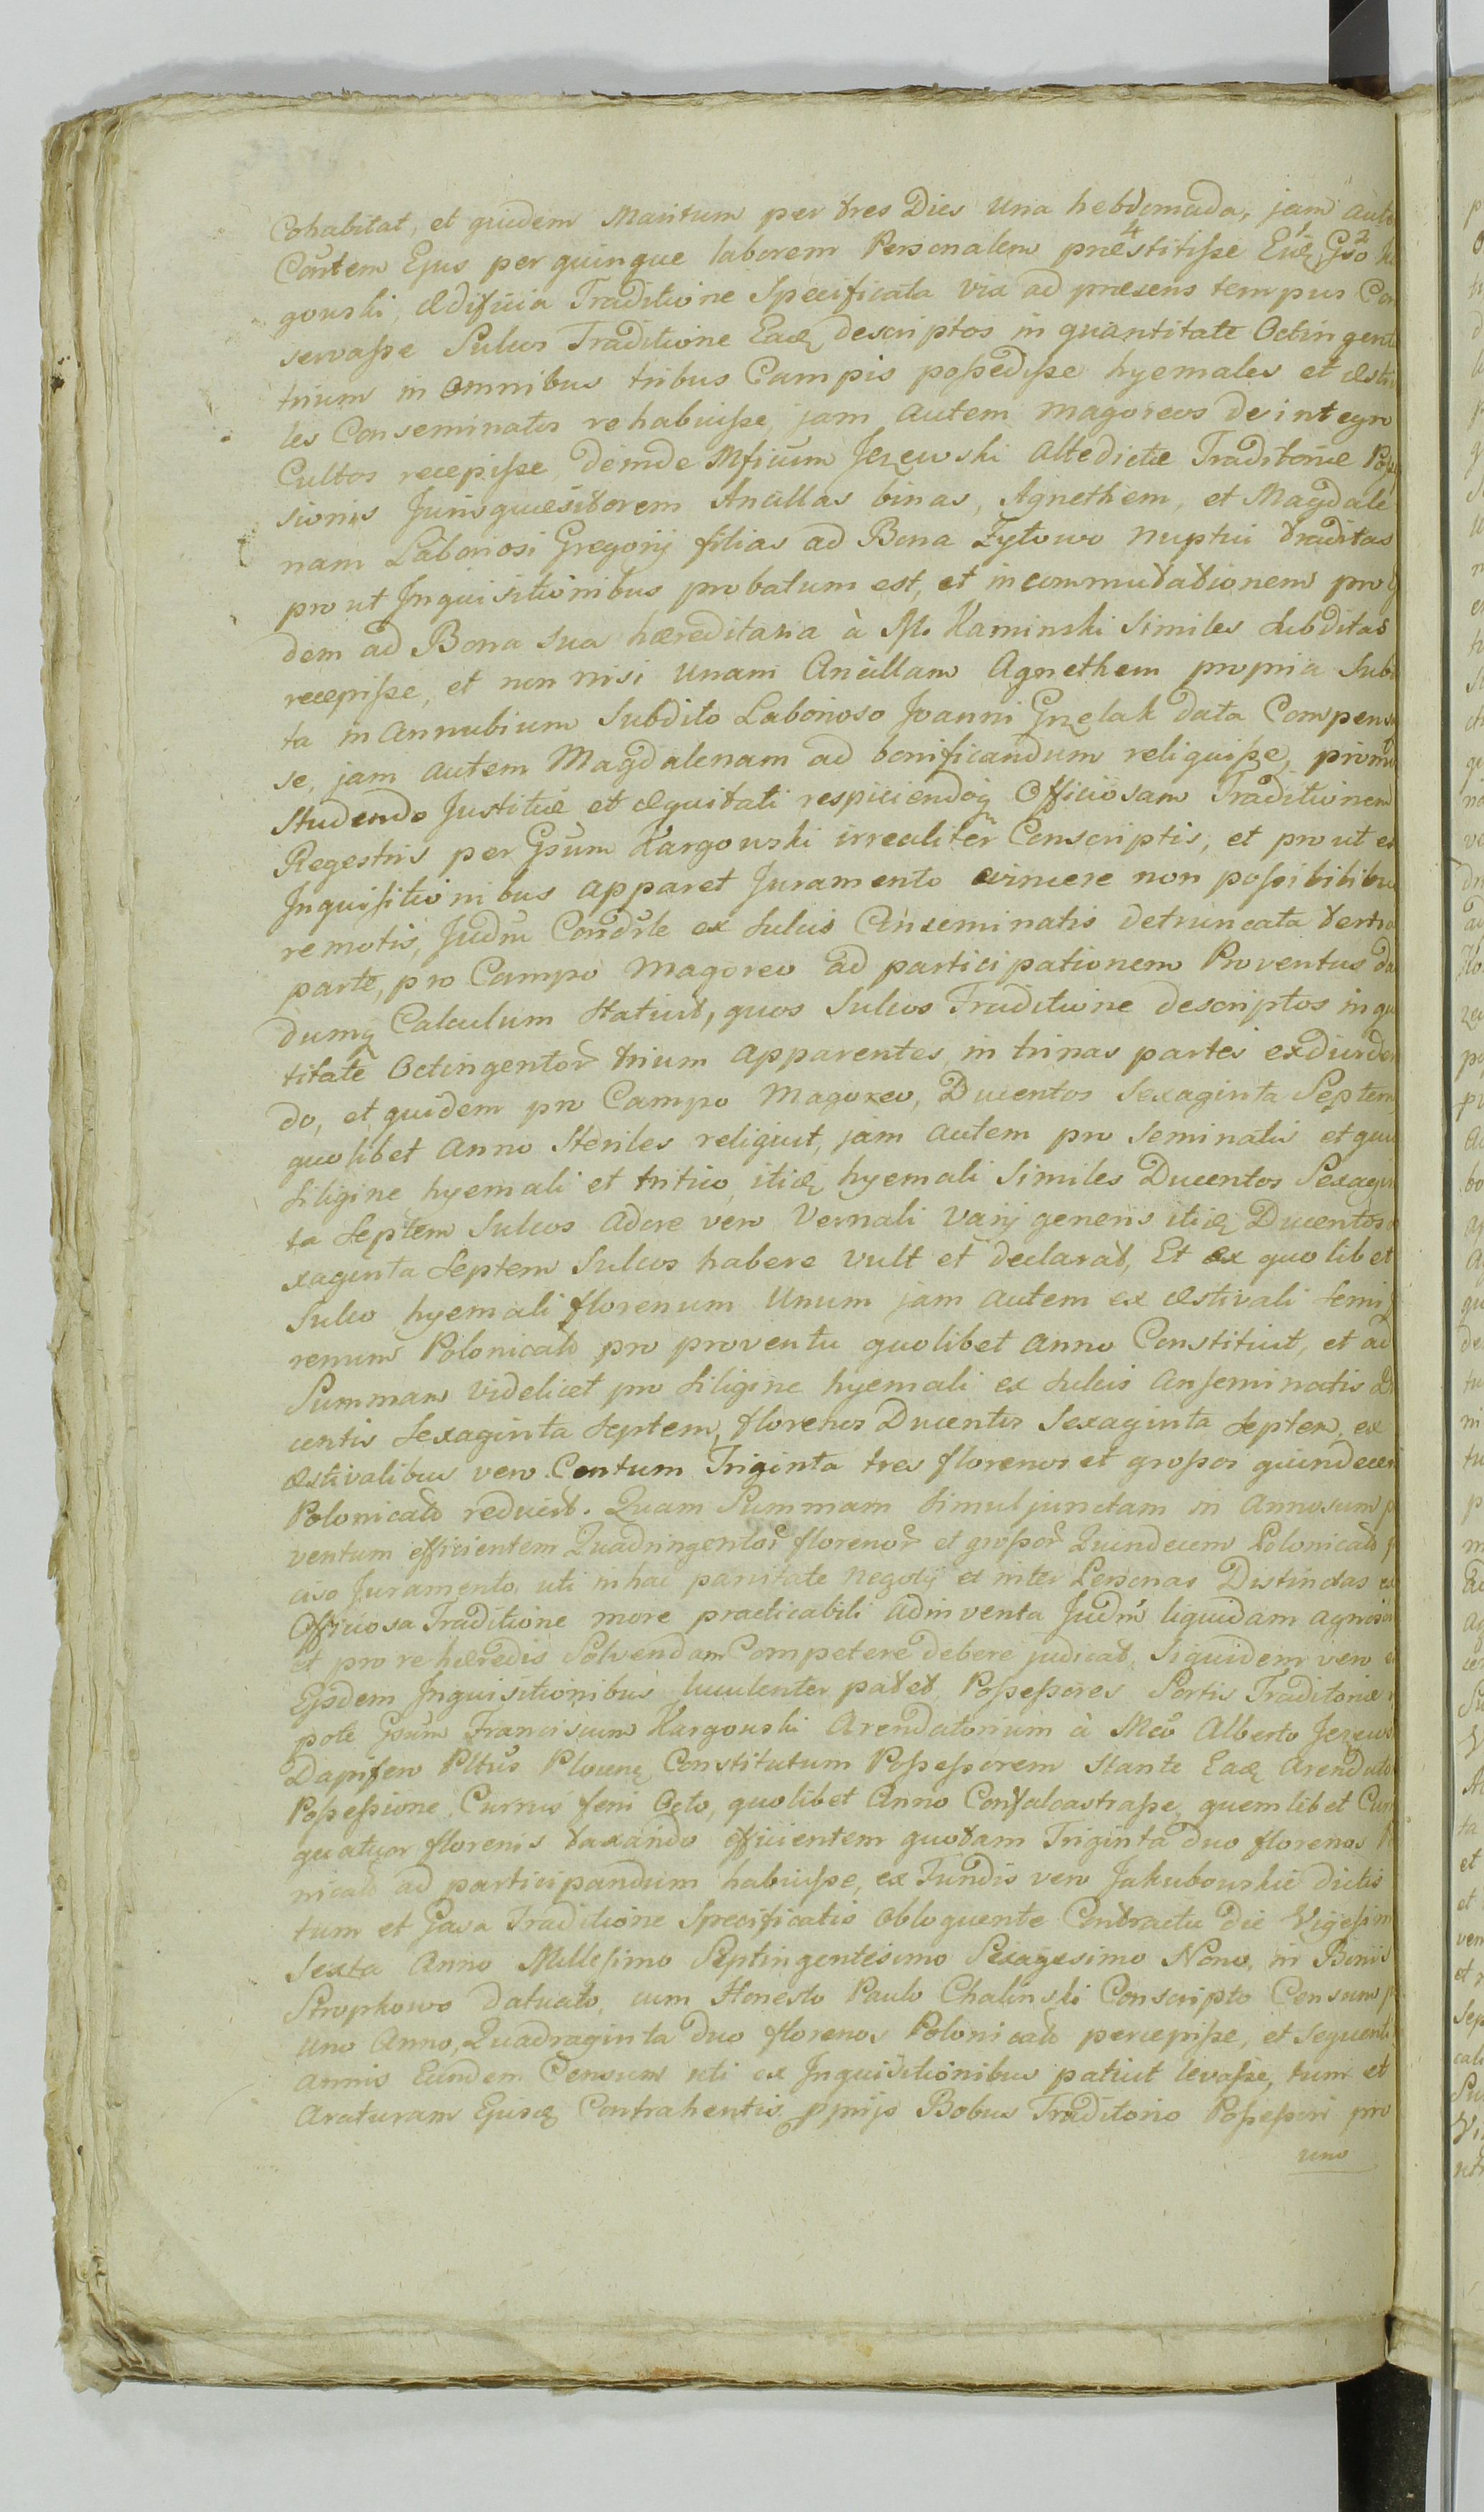 Cohabitat, et quidem Maritum per tres Dies Una hebdomada, jam aute
Cortem Ejus per quinque laborem Personalem præstitisse Eidē Gso
gouski, ædificia Traditione Specificata vix ad præsens tempus Con
servasse Sulcos Traditione Eadē descriptos in quantitate Octingent
trium in omnibus tribus Campis possedisse hyemales et æsti
les Conseminatos rehabuisse, jam autem magoreos de integro
Cultos recepisse, deinde Mficum Jezewski Altedictæ Traditoriæ Poss
sionis Jurisquæsitorem Ancillas binas, Agnethem, et Magdale
nam Laboriosi Gregorij filias ad Bona Zytowo nuptui traditas
prout Inquisitionibus probatum est, et in commutationem pro
dem ad Bona Sua hæreditaria à M. Kaminski Similes Subditas
recepisse, et non nisi Unam Ancillam Agnethem propria Sub
ta in Connubium Subdito Laborioso Joanni Grzelak data Compens
se, jam autem Magdalenam ad bonificandum reliquisse,
Studendo Justitiæ et æquitati respiciendoq Officiosam Traditionem
Regestris per Gsum Kargouski irrealiter Conscriptis, et prout ex
Inquisitionibus apparet Juramento evincere non possibilibus
remotis, Judm Condscle ex Sulcis Conseminatis detruncata tertia
parte, pro Campo Magoreo ad participationem Proventus da
dumq Calculum Statuit, quos Sulcos Traditione descriptos in qu
titate Octingentor trium apparentes in trinas partes
do, et quidem pro Campo Magoreo, Ducentos Sexaginta Septem
quolibet Anno Steriles reliquit, jam autem pro Seminatis et qui
Siligine hyemali et tritico, itidē hyemali Similes Ducentos Sexagin
ta Septem Sulcos adore vero Vernali varij generis itidē Ducentos
xaginta Septem Sulcos habere vult et declarat, Et ex quolibet
Sulco hyemali florenum Unum jam autem ex æstivali Semi
renum Polonicalo pro proventu quolibet anno Constituit, et ad
Summam videlicet pro Siligine hyemali ex Sulcis Conseminatis Du
centis Sexaginta Septem, florenos Ducentos Sexaginta Septem, ex
æstivalibus vero Centum Triginta tres florenos et grossos quindecem
Polonicalo reducit. Quam Summam Simul junctam in Annosum p
ventum efficientem Quadringentor florenor et grossor Quindecem Polonicalo
ciso Juramento, uti in hac parvitate negotij et inter Personas Distinctas ex
Officiosa Traditione more practicabili adinventa Judm liquidam agnosci
et pro re hæredis Solvendam Competere debere judicat, Siquidem vero e
Ejsdem Inquisitionibus luculenter patet Possessores Sortis Traditoriæ
pote Gsum Franciscum Kargouski Arendatorium à Mco Alberto Jezews
Dapifero Pltus Plocenę Constitutum Possessorem Stante Eadē Arendato
Possessione Currus feni Octo, quolibet Anno Confalcastrasse, quemlibet Curr
quatuor florenis taxando efficientem quotam Triginta duo florenos
nicalo ad participandum habuisse, ex Fundis vero Jakubouskie dictis
tum et Gasa Traditione Specificatis obloquente Contractu die Vigesim
Sexta Anno Millesimo Septingentesimo Sexagesimo Nono, in Bonis
Stropkowo Datuato, cum Honesto Paulo Chalinski Conscripto Censum p
uno Anno, Quadraginta duo florenos Polonicalo percepisse, et Sequenti
annis Eundem Censum uti ex Inquisitionibus patuit levasse, tum et
Araturam Ejusdē Contrahentis pprijs Bobus Traditorio Possessori pro
uno